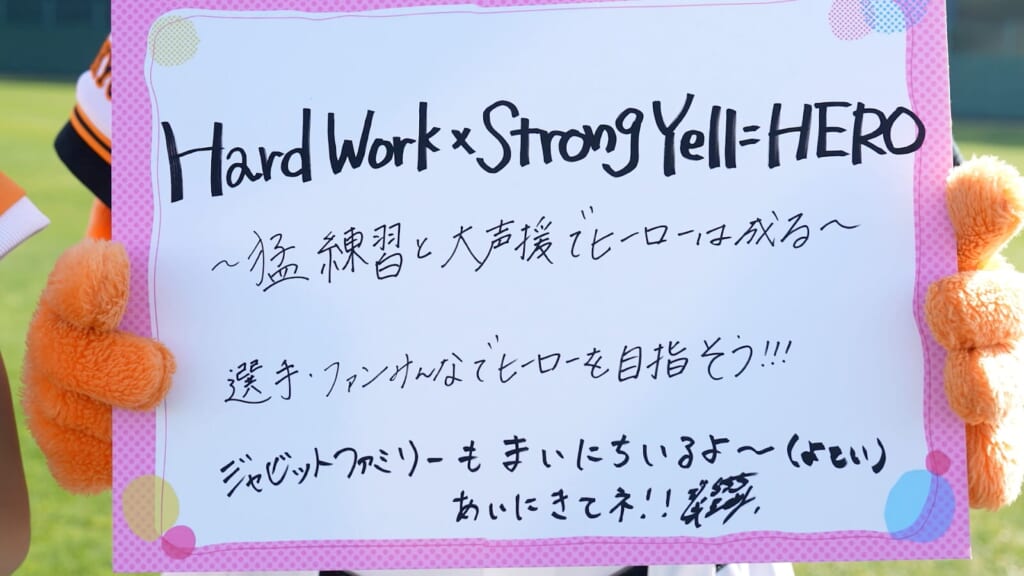 Hard Work×Strong Yell=HERO
～猛練習と大声援でヒーローは成る～
選手・ファンみんなでヒーローを目指そう!!!
ジャビットファミリーも まいにちいるよ～
あいにきてネ!!